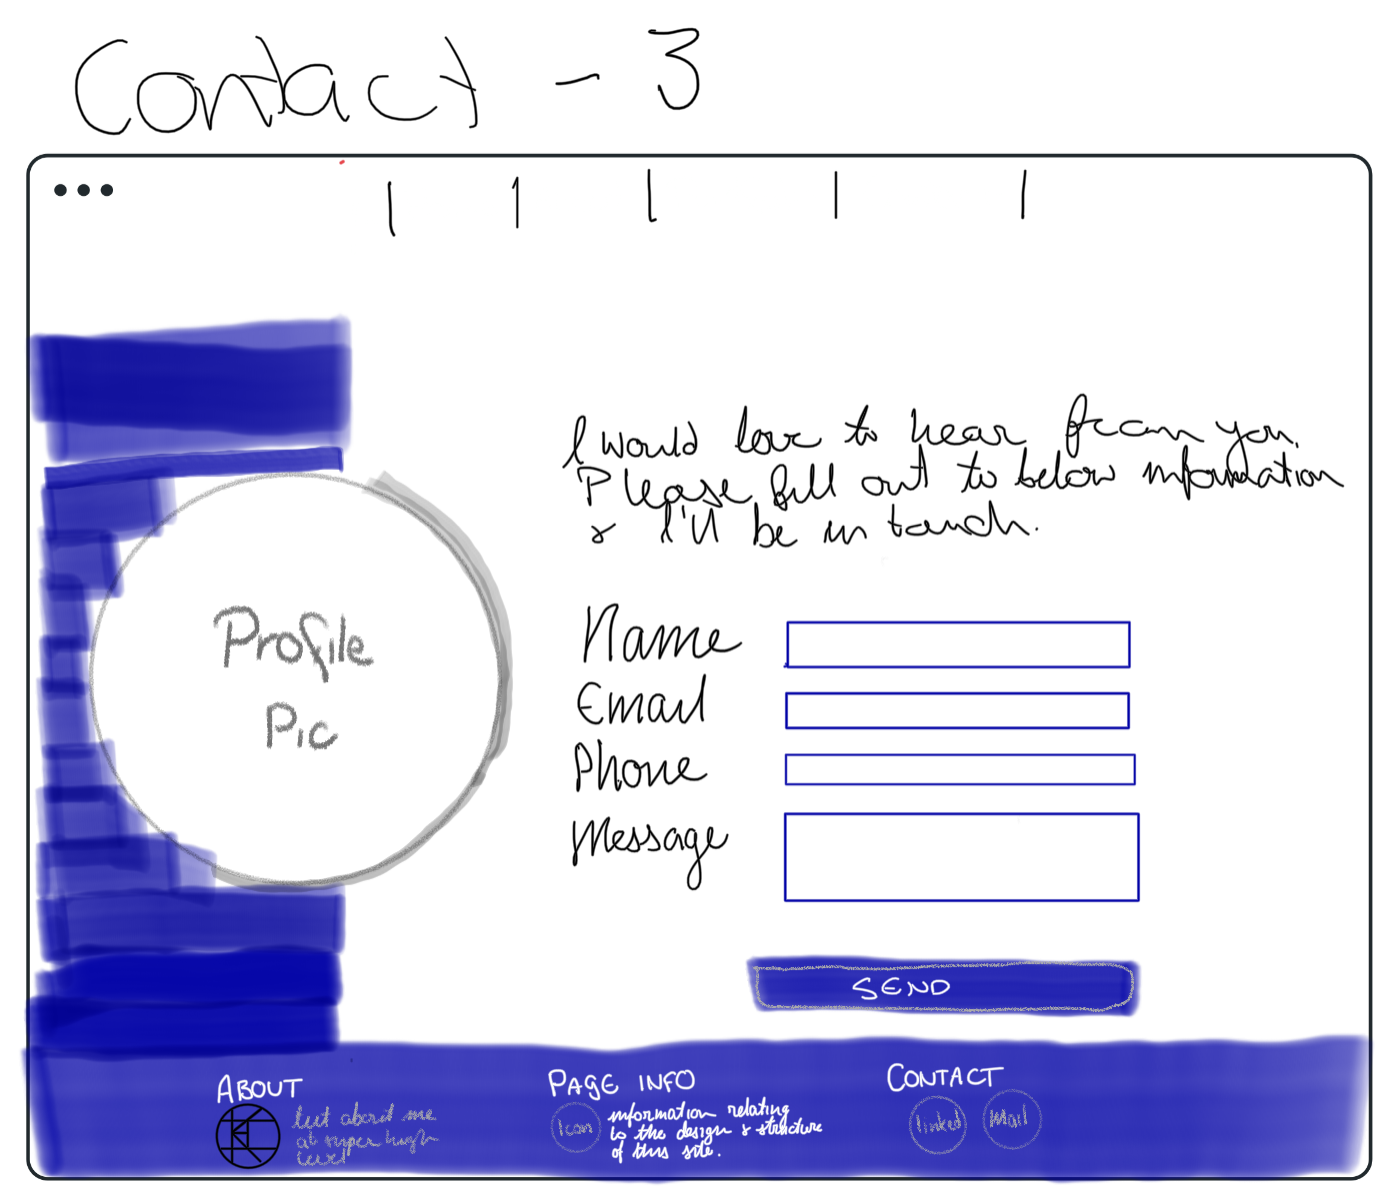 Contact - 3
I would love to hear from you.
Please fill out to below information
& I'll be in touch.
Profile
Pic
Name
Email
Phone
Message
SEND
ABOUT
text about me
at super high
level
PAGE INFO
Icon
information relating
to the design & structure
of this site.
CONTACT
linked
Mail